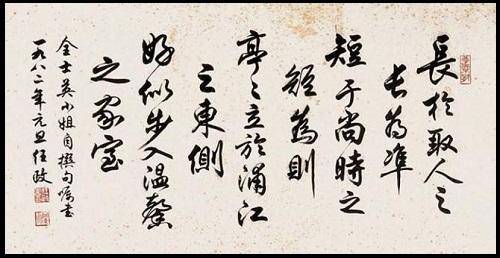 長於取人之
长為準
短于尚時之
短為則
亭亭立於浦江
之東側
好似步入温馨
之家室
全士英小姐自撰句嘱書
一九八二年元旦任政